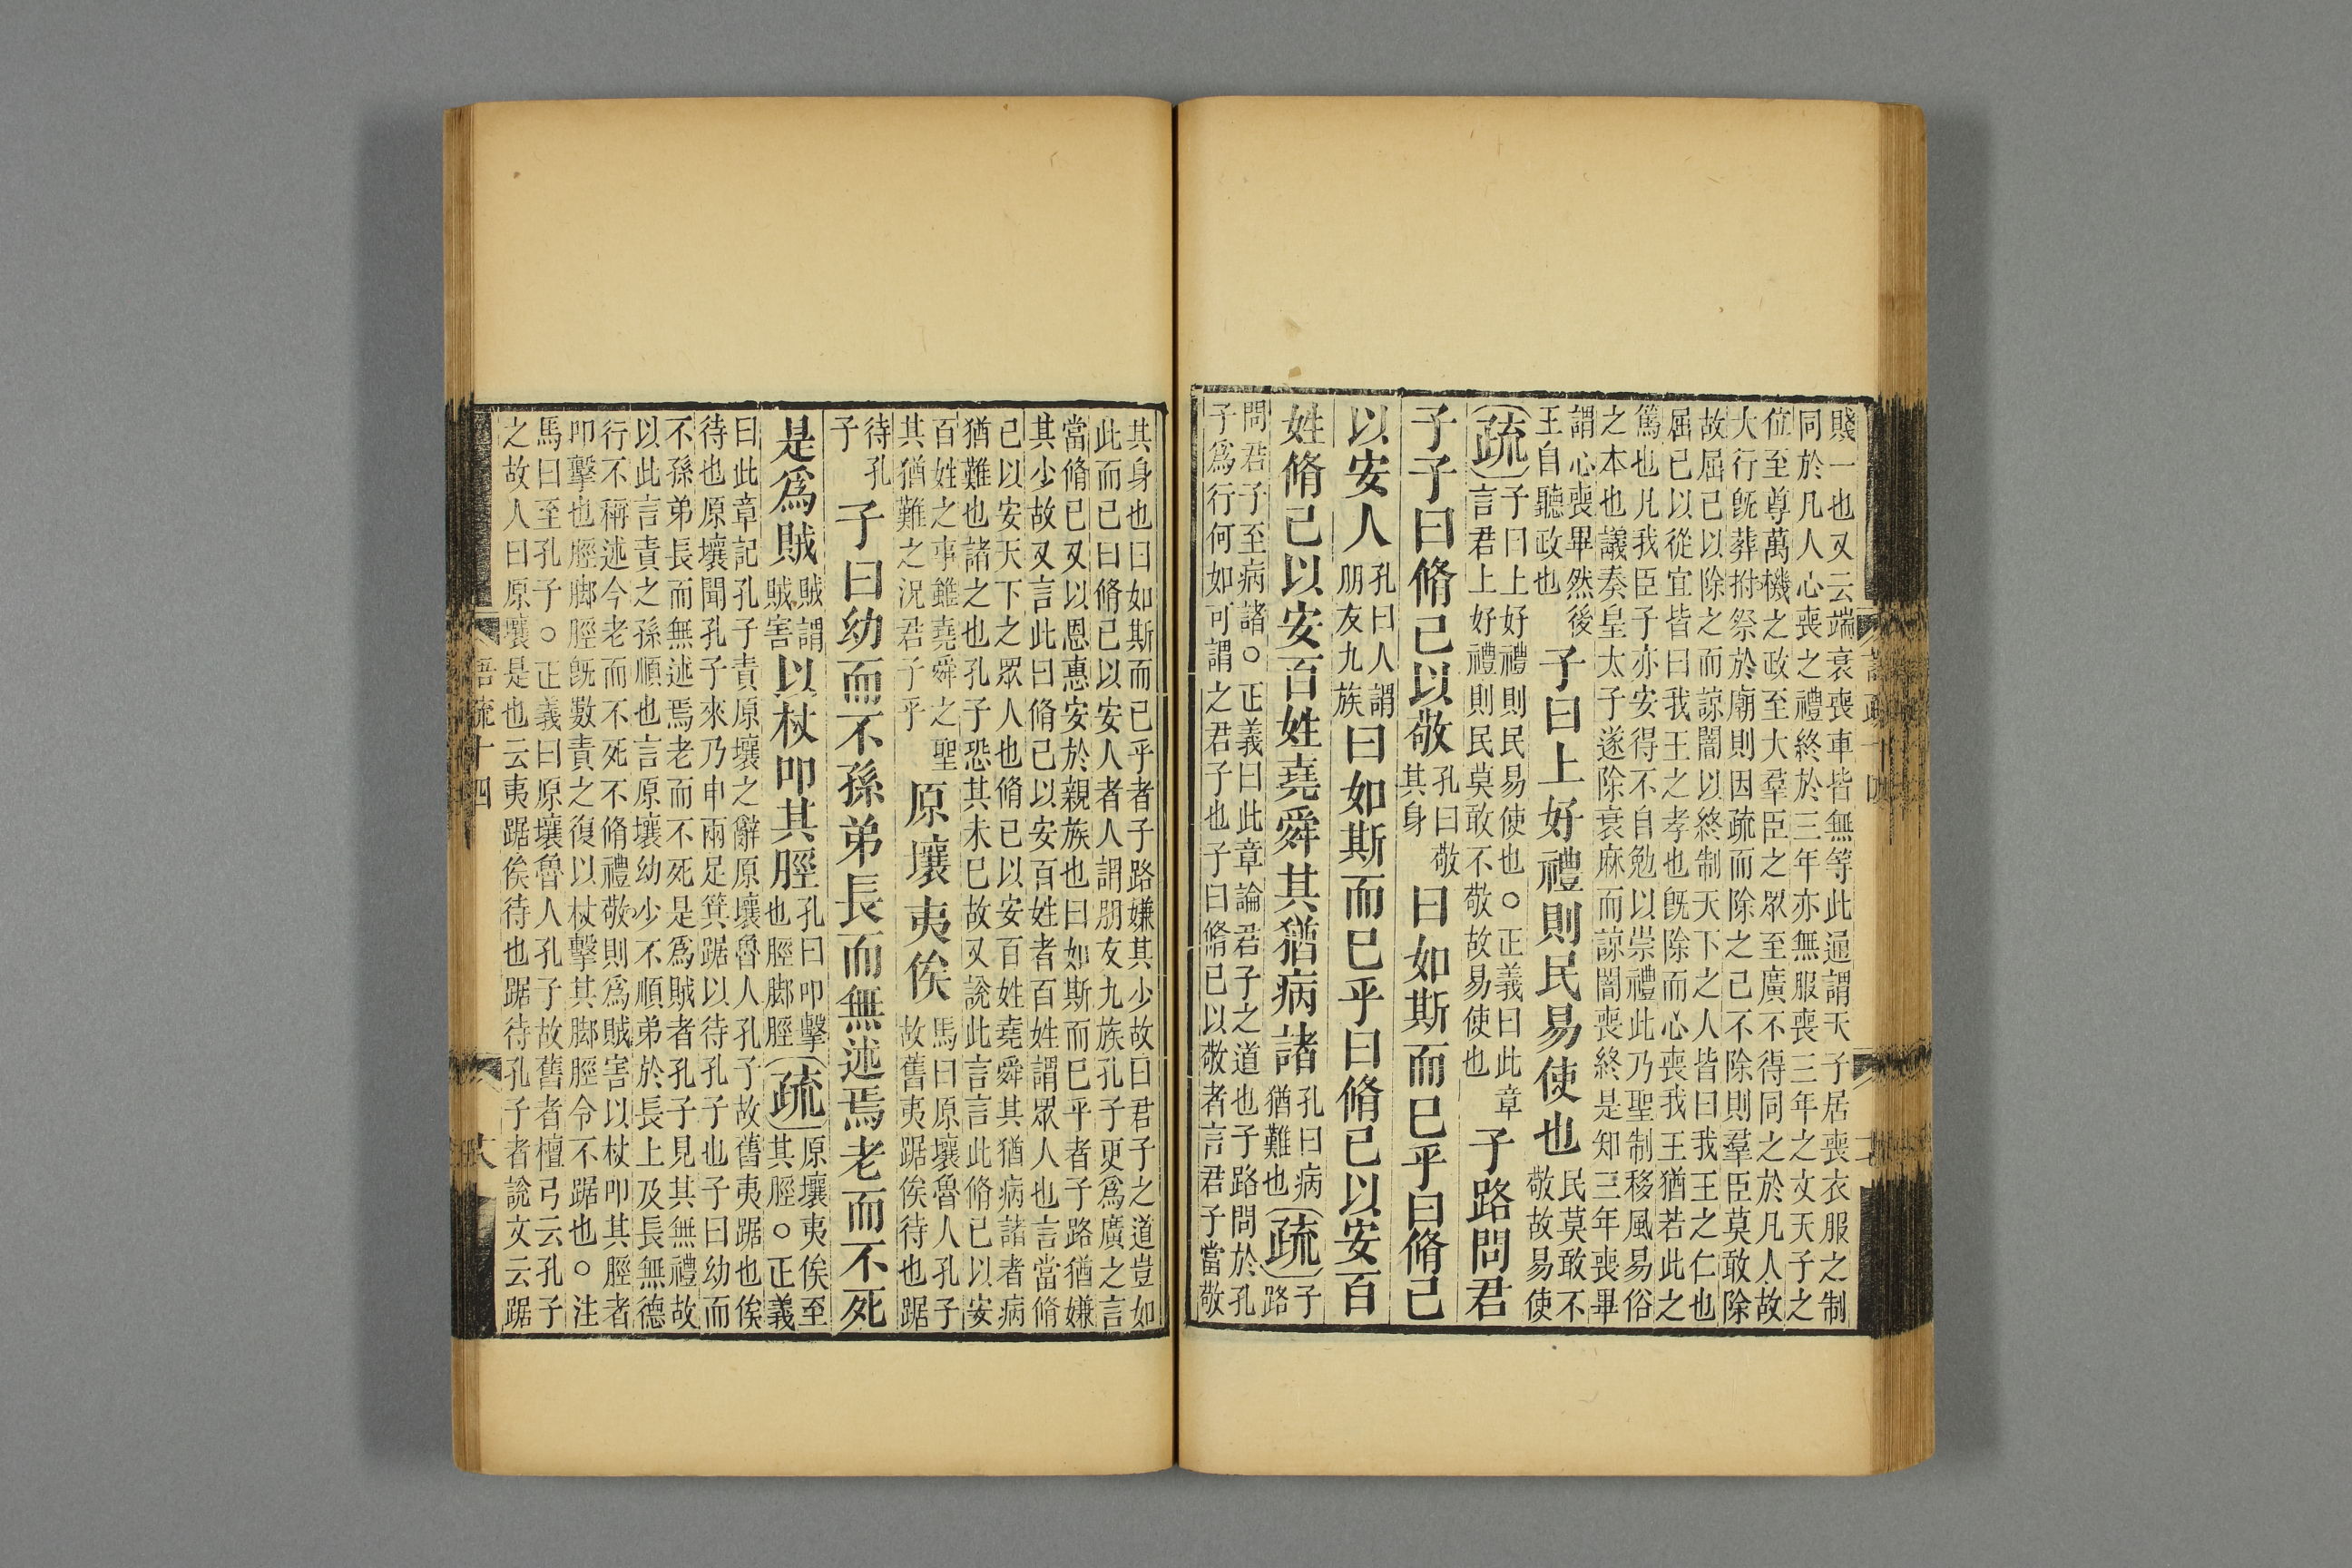 賤一也又云端衰喪車皆無等此通謂天子居喪衣服之制
同於凡人心喪之禮終於三年亦無服喪三年之文天子之
位至尊萬機之政至大羣臣之眾至廣不得同之於凡人故
大行旣葬祔祭於廟則因疏而除之己不除則羣臣莫敢除
故屈己以除之而諒闇以終制天下之人皆曰我王之仁也
屈己以從宜皆曰我王之孝也旣除而心喪我王猶若此之
篤也凡我臣子亦安得不自勉以崇禮此乃聖制移風易俗
之本也議奏皇太子遂除衰麻而諒闇喪終是知三年喪畢
謂心喪畢然後
王自聽政也
子曰上好禮則民易使也
民莫敢不
敬故易使
疏
子曰上好禮則民易使也○正義曰此章
言君上好禮則民莫敢不敬故易使也
子路問君
子子曰脩己以敬
孔曰敬
其身
曰如斯而已乎曰脩己
以安人
孔曰人謂
朋友九族
曰如斯而已乎曰脩己以安百
姓脩己以安百姓堯舜其猶病諸
孔曰病
猶難也
疏
子
路
問君子至病諸○正義曰此章論君子之道也子路問於孔
子爲行何如可謂之君子也子曰脩己以敬者言君子當敬
其身也曰如斯而已乎者子路嫌其少故曰君子之道豈如
此而已曰脩己以安人者人謂朋友九族孔子更爲廣之言
當脩己又以恩惠安於親族也曰如斯而已乎者子路猶嫌
其少故又言此曰脩己以安百姓者百姓謂眾人也言當脩
己以安天下之眾人也脩己以安百姓堯舜其猶病諸者病
猶難也諸之也孔子恐其未已故又說此言言此脩己以安
百姓之事雖堯舜之聖
其猶難之況君子乎
原壤夷俟
馬曰原壤魯人孔子
故舊夷踞俟待也踞
待孔
子
子曰幼而不孫弟長而無述焉老而不死
是爲賊
賊謂
賊害
以杖叩其脛
孔曰叩擊
也脛脚脛
疏
原壤夷俟至
其脛○正義
曰此章記孔子責原壤之辭原壤魯人孔子故舊夷踞也俟
待也原壤聞孔子來乃申兩足箕踞以待孔子也子曰幼而
不孫弟長而無述焉老而不死是爲賊者孔子見其無禮故
以此言責之孫順也言原壤幼少不順弟於長上及長無德
行不稱述今老而不死不脩禮敬則爲賊害以杖叩其脛者
叩擊也脛脚脛旣數責之復以杖擊其脚脛令不踞也○注
馬曰至孔子○正義曰原壤魯人孔子故舊者檀弓云孔子
之故人曰原壤是也云夷踞俟待也踞待孔子者說文云踞
語疏十四